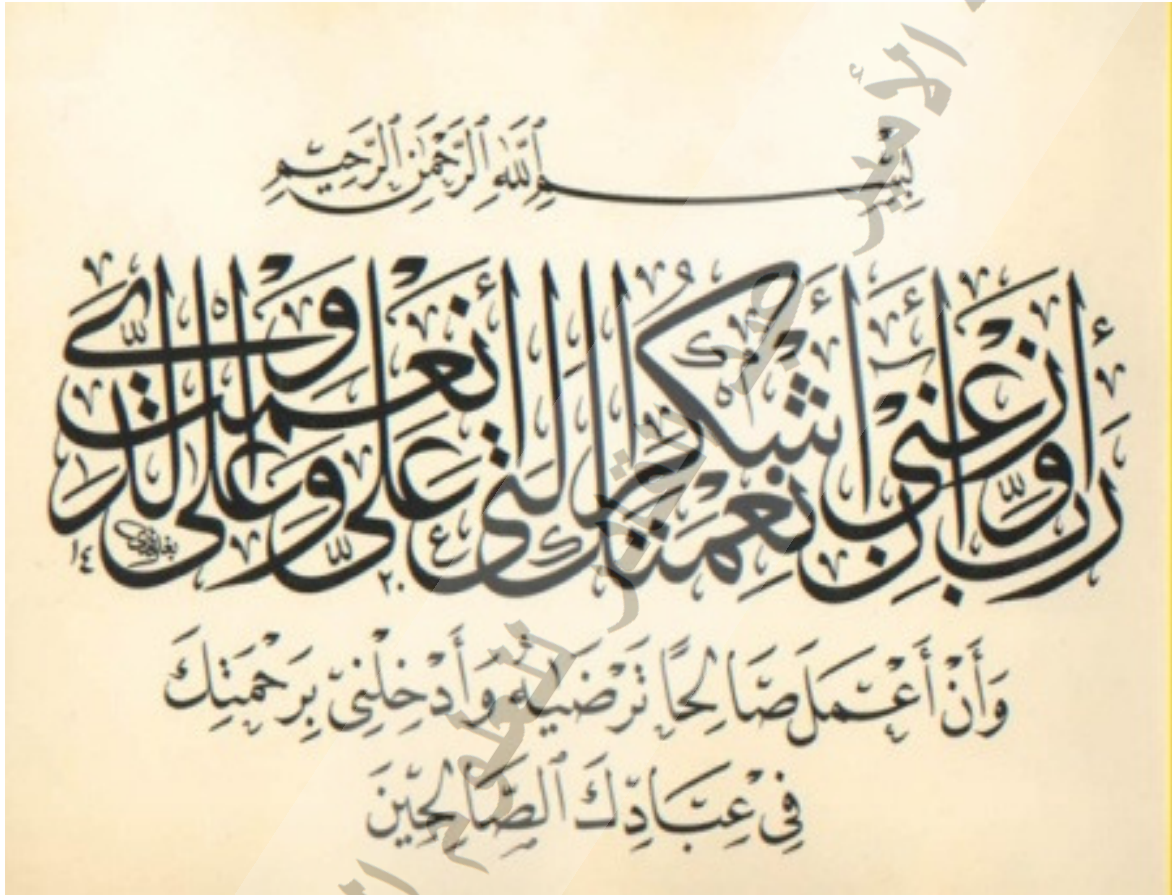 بِسْمِ ٱللَّهِ ٱلرَّحْمَٰنِ ٱلرَّحِيمِ
رَبِّ أَوْزِعْنِي أَنْ أَشْكُرَ نِعْمَتَكَ الَّتِي أَنْعَمْتَ عَلَيَّ وَعَلَىٰ وَالِدَيَّ
وَأَنْ أَعْمَلَ صَالِحًا تَرْضَيٰهُ وَأَدْخِلْنِي بِرَحْمَتِكَ
فِي عِبَادِكَ ٱلصَّالِحِينَ
الأمير